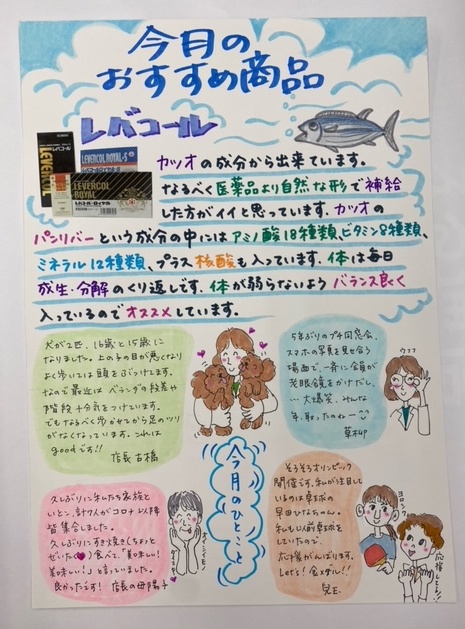 今月の
おすすめ商品
レバコール
LEVERCOL ROYAL-S
LEVERCOL
ROYAL
カツオの成分から出来ています。
なるべく医薬品より自然な形で補給
した方がイイと思っています。カツオの
パンリバーという成分の中にはアミノ酸18種類、ビタミン8種類、
ミネラル12種類、プラス核酸も入っています。体は毎日
成生・分解のくり返しです。体が弱らないようバランス良く
入っているのでオススメしています。
犬が2匹、16歳と15歳に
なりました。上の子の目が悪くなり
よく歩いては頭をぶつけます。
なので最近はベランダの段差や
階段十分気をつけています。
でもなるべく歩かせてから足のツリ
がなくなっています。これは
goodです!!
店長 古橋
5年ぶりのプチ同窓会。
スマホの写真を見せ合う
場面で、一斉に全員が
老眼鏡をかけだし、
…大爆笑。みんな
年、取ったのねー
草柳
ウフフ
今月のひとこと
久しぶりに私たち家族と
いとこ、計7人がコロナ以降
皆集合しました。
久しぶりにすき焼き(ちょっと
ぜいたく)食べて、「美味しい!
美味しい!」と言っていました。
良かったです! 店長の母 陽子
オイシイモノ
ダイスキ
そろそろオリンピック
開催です。私が注目して
いるのは卓球の
早田ひなちゃん。
私も以前卓球を
していたので、
応援がんばります。
Let's! 金メダル!!
児玉
ヨロシク
応援してね!